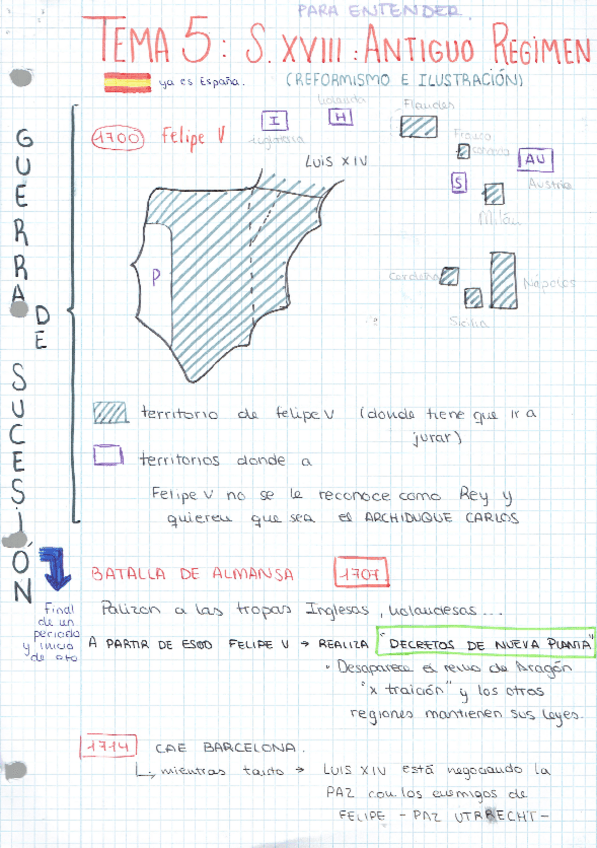 PARA ENTENDER.
TEMA 5: S.XVIII: ANTIGUO REGIMEN
ya es España. (REFORMISMO E ILUSTRACIÓN)
GUERRA DE SUCESIÓN
1700 Felipe V
I
Inglaterra
Holanda
H
Flandes
Franco
condado
AU
Austria
S
Milán
LUIS XIV
P
Cerdeña
Nápoles
Sicilia
territorio de felipe V (donde tiene que ir a
jurar)
territorios donde a
Felipe V no se le reconoce como Rey y
quieren que sea el ARCHIDUQUE CARLOS
BATALLA DE ALMANSA 1707
Final
de un
periodo
y inicio
de oto
Palizon a las tropas Inglesas, holandesas...
A PARTIR DE ESOO FELIPE V → REALIZA "DECRETOS DE NUEVA PLANTA"
· Desaparece el reino de Aragón
"x traición" y los otros
regiones mantienen sus leyes.
1714 CAE BARCELONA.
mientras tanto → LUIS XIV está negociando la
PAZ con los enemigos de
FELIPE - PAZ UTRRECHT -